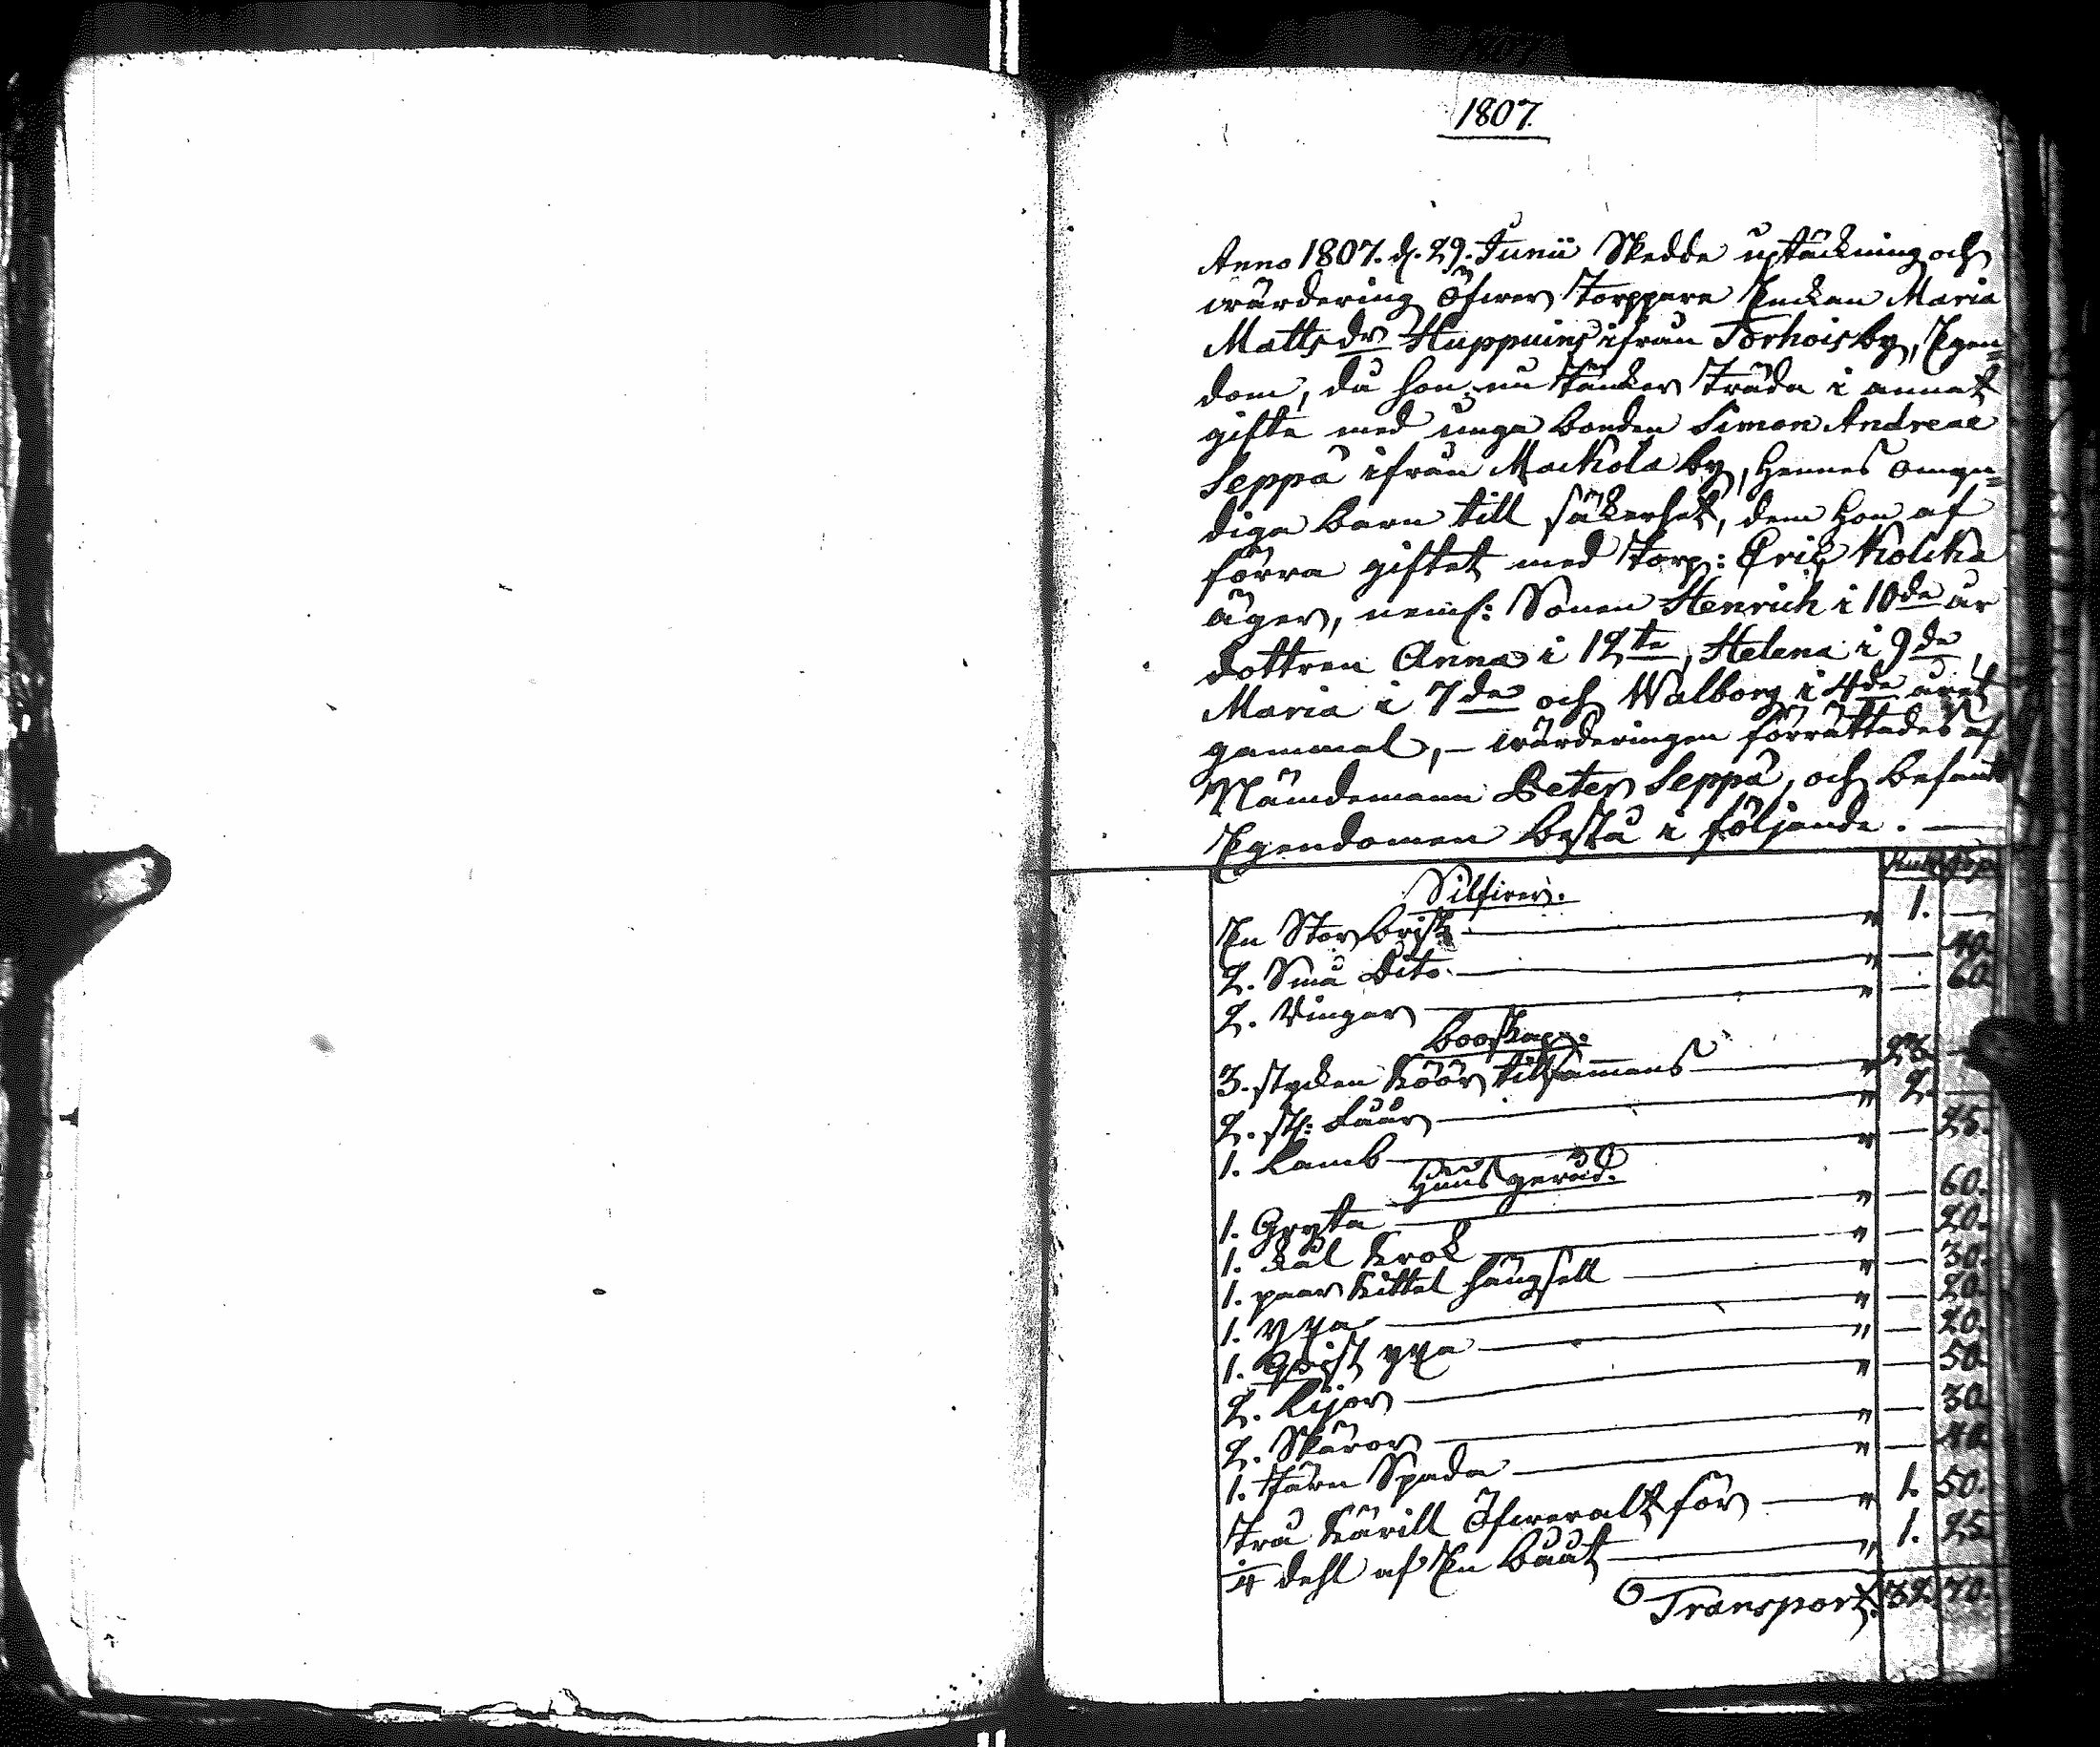 1807.
Anno 1807. d. 29. Junii Skedde uptäckning och
wärdering öfwer Torppare Enckan Maria
Matts dr Huppuins ifrån Torhois by, Egen=
dom, då hon nu täncker träda i annat
gifte med unga bonden Simon Andreae
Seppä ifrån Mackola by, hennes omyn=
diga barn till säkerhet, dem hon af
förra giftet med Torp: Eric Kolcka
äger, neml: Sonen Henrich i 10de år
dottren Anna i 12te, Helena i 9de,
Maria i 7de och Walborg i 4de året
gammal, – wärderingen förrättades af
Nämdemann Peter Seppä, och befants
Egendomen bestå i följande. —
Silfwer.
En Stor brisk — " 1. —
2. Små Dito. — " — 40
2. Ringar — " — 60
Booskap.
3. stycken Köör tilsammans — " 23. —
2. st: Fåår — " 2. —
1. Lamb — " — 25.
Huusgeråd.
1. Gryta — " — 60.
1. kål Krok — " — 20.
1. paar Kittel hängsell — " — 30.
1. Yxa — " — 20.
1. qvist yxa — " — 20.
2. Lijor — " — 50.
2. Skäror — " — 30
1. Järn Spada — " — 40
Trä Kärill Öfweralt för — " 1. 50.
1/4 dehl af En bååt — " 1. 25
Transport. 32. 70.